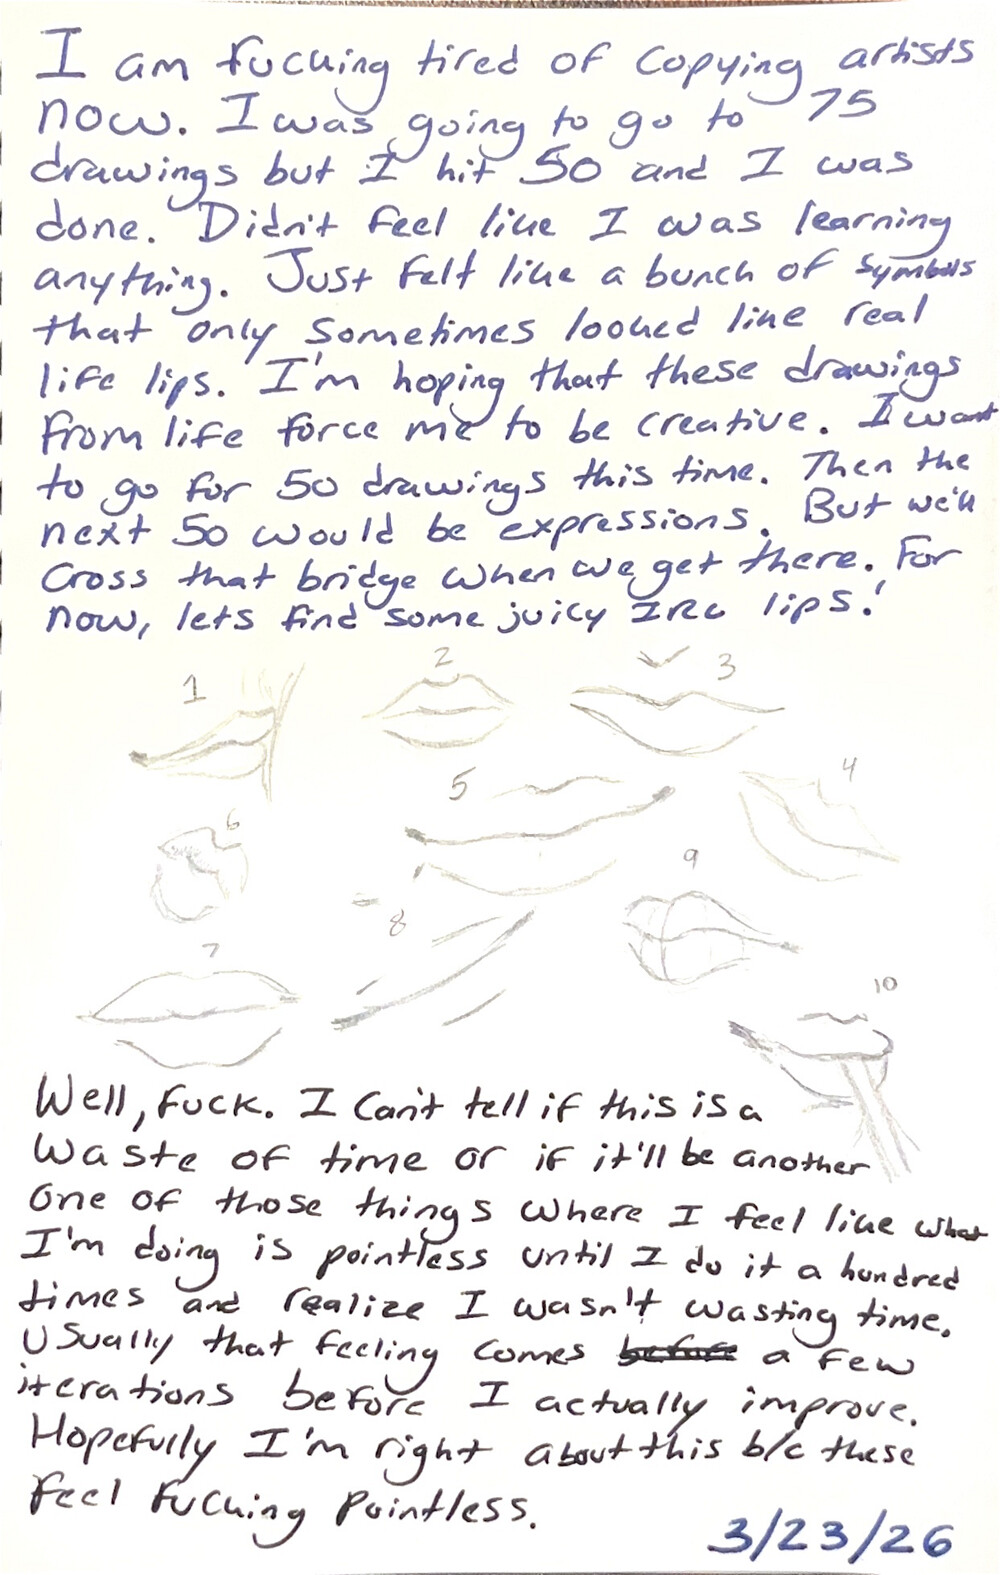 I am fucking tired of copying artists
now. I was going to go to 75
drawings but I hit 50 and I was
done. Didn't feel like I was learning
anything. Just felt like a bunch of symbols
that only sometimes looked like real
life lips. I'm hoping that these drawings
from life force me to be creative. I want
to go for 50 drawings this time. Then the
next 50 would be expressions. But we'll
cross that bridge when we get there. For
now, lets find some juicy IRL lips!
1
2
3
4
5
6
7
8
9
10
Well, fuck. I can't tell if this is a
waste of time or if it'll be another
one of those things where I feel like what
I'm doing is pointless until I do it a hundred
times and realize I wasn't wasting time.
Usually that feeling comes before a few
iterations before I actually improve.
Hopefully I'm right about this b/c these
feel fucking pointless.
3/23/26